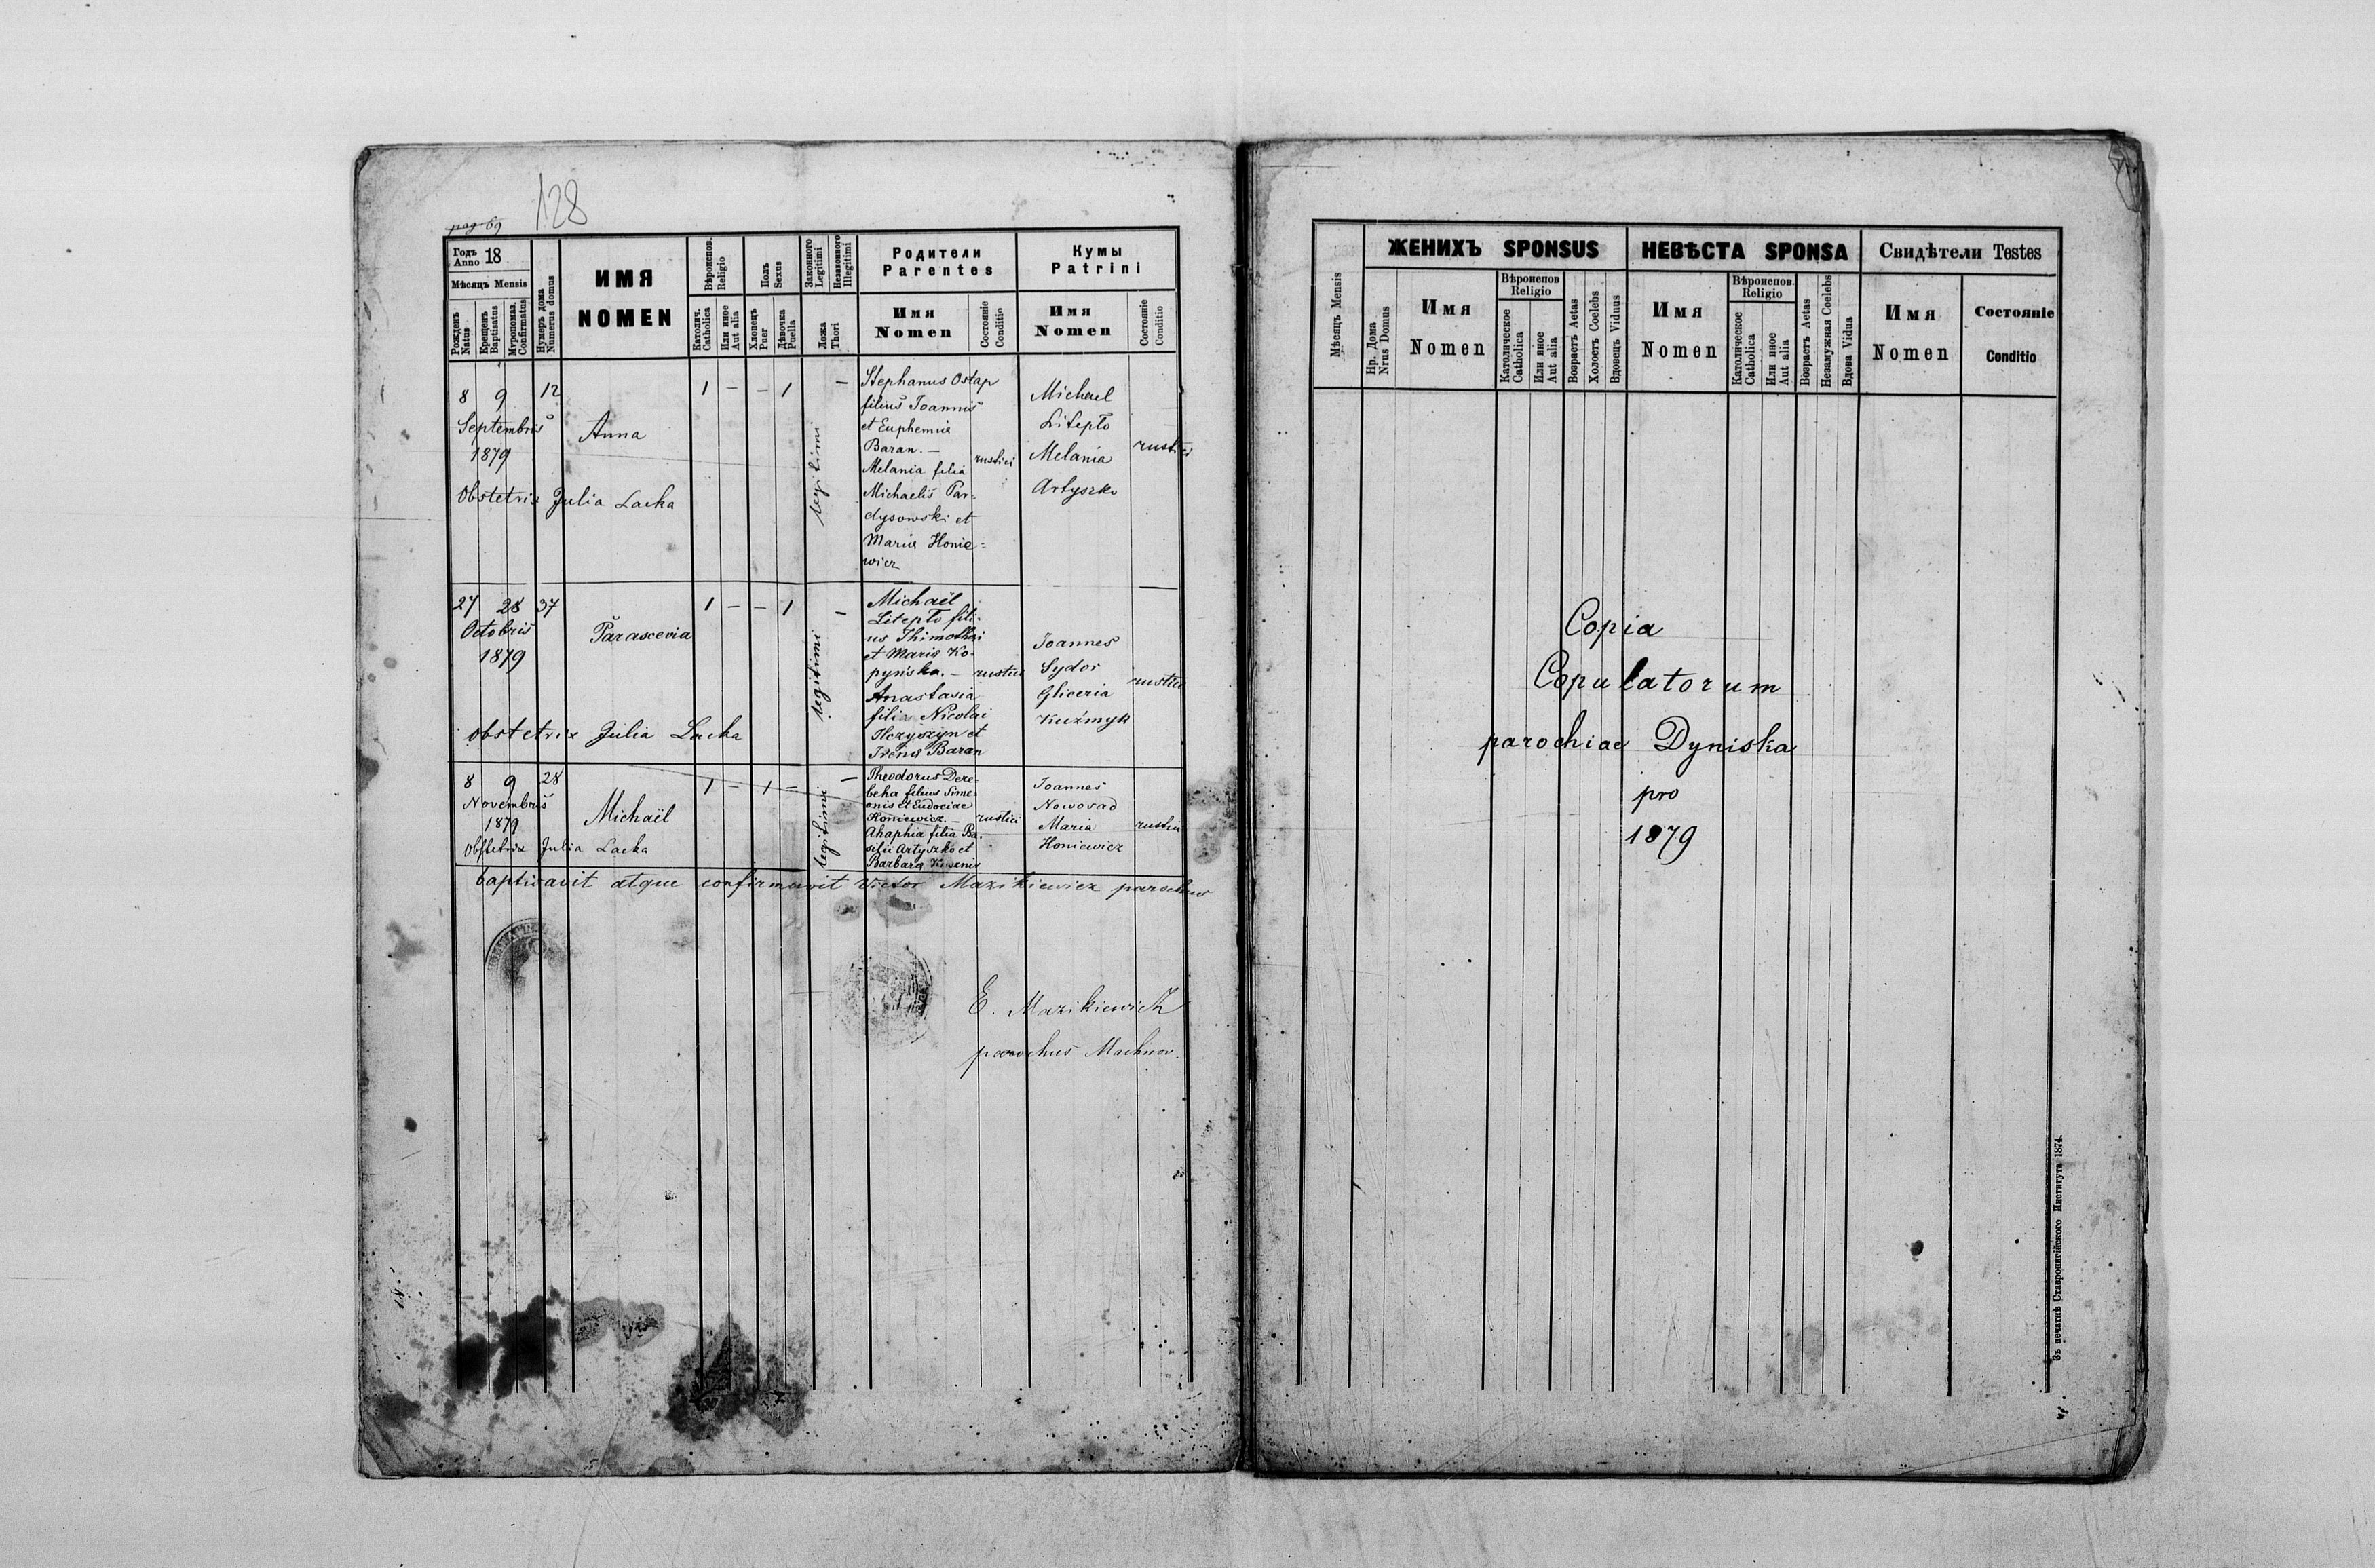 pag 69
128
Годъ Anno 18
Мѣсяцъ Mensis
Рожденъ Natus
Крещенъ Baptisatus
Мѵропомаз. Confirmatus
Нумеръ дома Numerus domus
ИМЯ
NOMEN
Вѣроиспов. Religio
Католич. Catholica
Или иное Aut alia
Полъ Sexus
Хлопецъ Puer
Дѣвочка Puella
Законного Legitimi
Незаконного Illegitimi
Ложа Thori
Родители
Parentes
Имя
Nomen
Состояніе Conditio
Кумы
Patrini
Имя
Nomen
Состояніе Conditio
8 9 12
Septembris
1879
Anna
1 - - 1
legitimi -
Stephanus Ostap
filius Joannis
et Euphemia
Baran. -
Melania filia
Michaelis Par=
dysowski et
Maria Honie=
wicz
rustici
Michael
Litepto
Melania
Artyszko
rustici
Obstetrix Julia Lacka
27 28 37
Octobris
1879
Parascevia
1 - - 1
legitimi -
Michaël
Litepto fili-
us Thimothei
et Maria Ko-
pyńska. -
Anastasia
filia Nicolai
et
Irena Baran
rustici
Joannes
Sydor
Gliceria
Kuźmyk
rustici
obstetrix Julia Lacka
8 9 28
Novembris
1879
Michaël
1 - 1 -
legitimi -
Theodorus Dere-
beha filius Sime-
onis et Eudociae
Honiewicz. -
Ahaphia filia Ba-
silii Artyszko et
Barbara
rustici
Joannes
Nowosad
Maria
Honiewicz
rustici
Obstetrix Julia Lacka
baptisavit atque confirmavit Victor Mazikiewicz parochus
E. Mazikiewicz
parochus Machnov.
Мѣсяцъ Mensis
ЖЕНИХЪ SPONSUS
Нр. Дома Nrus Domus
Имя
Nomen
Вѣроиспов
Religio
Католическое Catholica
Или иное Aut alia
Возрастъ Aetas
Холостъ Coelebs
Вдовецъ Viduus
НЕВѢСТА SPONSA
Имя
Nomen
Вѣроиспов.
Religio
Католическое Catholica
Или иное Aut alia
Возрастъ Aetas
Незамужная Coelebs
Вдова Vidua
Свидѣтели Testes
Имя
Nomen
Состояніе
Conditio
Copia
Copulatorum
parochiae Dyniska
pro
1879
Зъ печатнѣ Ставропигійского Института 1874.